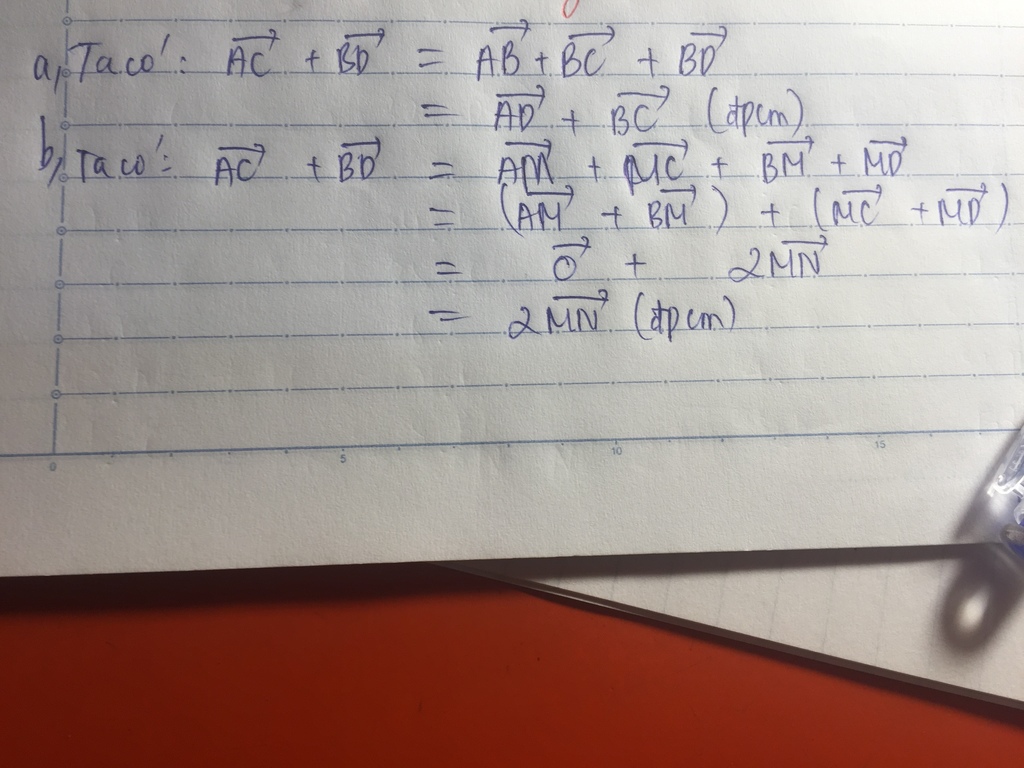 a, Ta có: $\overrightarrow{AC} + \overrightarrow{BD} = \overrightarrow{AB} + \overrightarrow{BC} + \overrightarrow{BD}$
$= \overrightarrow{AD} + \overrightarrow{BC}$ (đpcm)
b, Ta có: $\overrightarrow{AC} + \overrightarrow{BD} = \overrightarrow{AM} + \overrightarrow{MC} + \overrightarrow{BM} + \overrightarrow{MD}$
$= (\overrightarrow{AM} + \overrightarrow{BM}) + (\overrightarrow{MC} + \overrightarrow{MD})$
$= \overrightarrow{O} + 2\overrightarrow{MN}$
$= 2\overrightarrow{MN}$ (đpcm)
0 5 10 15